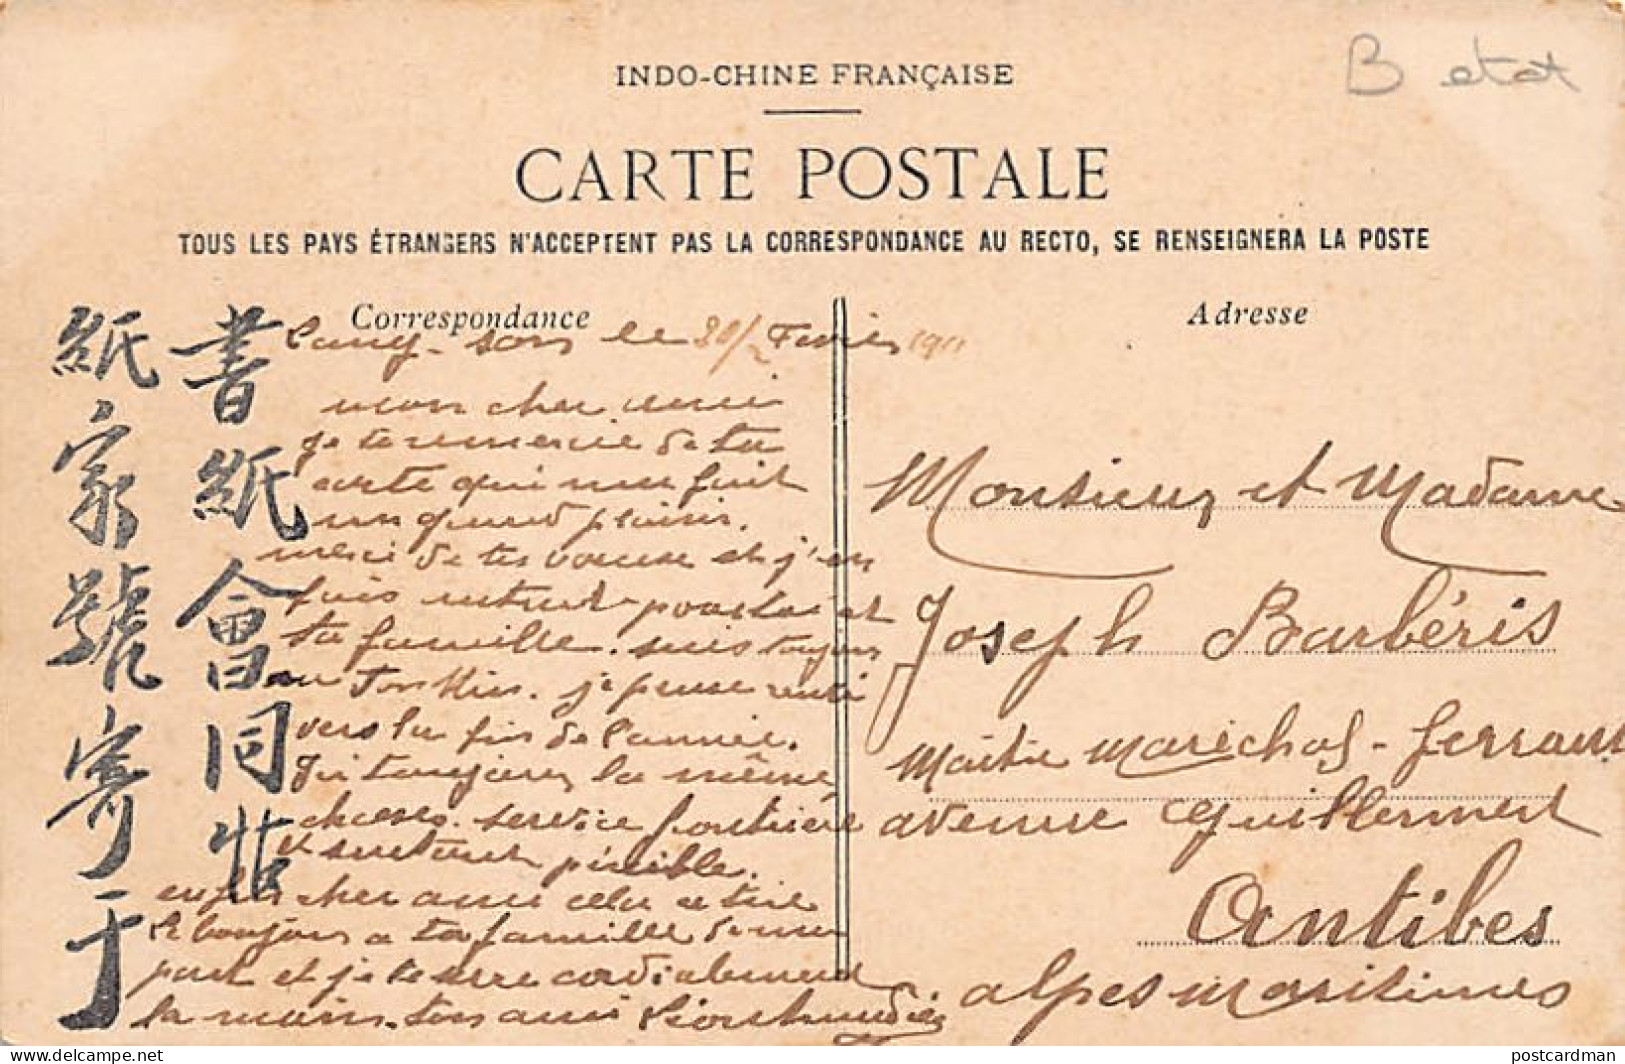 B etat
INDO-CHINE FRANÇAISE
CARTE POSTALE
TOUS LES PAYS ÉTRANGERS N'ACCEPTENT PAS LA CORRESPONDANCE AU RECTO, SE RENSEIGNERA LA POSTE
Correspondance
Lang-son le Fevrier 1911
mon cher ami
je te remercie de ta
carte qui me fait
un grand plaisir.
merci de tes voeux et j'en
fais autant pour toi et
ta famille. suis toujours
au Tonkin. je pense rentré
vers la fin de l'année.
J'ai toujours la même
choses. service frontière
et surtout pénible.
enfin cher ami cela se tire
le bonjour a ta famille de ma
part et je te serre cordialement
la main. ton ami
書紙會同
紙家號寄于
Adresse
Monsieur et Madame
Joseph Barbéris
Maître maréchal-ferrant
avenue Guillermert
Antibes
alpes maritimes
postcardman